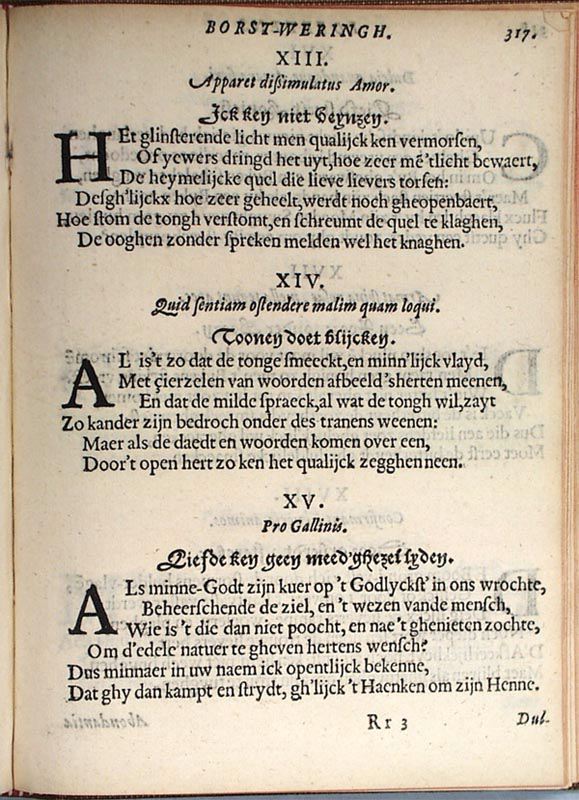 BORST-WERINGH. 317.
XIII.
Apparet dißimulatus Amor.
Jck key niet veynzey.
HEt glinſterende licht men qualijck ken vermorſen,
Of yewers dringd het uyt, hoe zeer mē 'tlicht bewaert,
De heymelijcke quel die lieve lievers torſen:
Deſgh'lijckx hoe zeer geheelt, werdt noch gheopenbaert,
Hoe ſtom de tongh verſtomt, en ſchreumt de quel te klaghen,
De ooghen zonder ſpreken melden wel het knaghen.
XIV.
Quid ſentiam oſtendere malim quam loqui.
Tooney doet blijckey.
AL is't zo dat de tonge ſmeeckt, en minn'lijck vlayd,
Met çierzelen van woorden afbeeld 'sherten meenen,
En dat de milde ſpraeck, al wat de tongh wil, zayt
Zo kander zijn bedroch onder des tranens weenen:
Maer als de daedt en woorden komen over een,
Door't open hert zo ken het qualijck zegghen neen.
XV.
Pro Gallinis.
Liefde key geey meed'ghezel lydey.
ALs minne-Godt zijn kuer op 't Godlyckſt' in ons wrochte,
Beheerſchende de ziel, en 't wezen vande menſch,
Wie is 't die dan niet poocht, en nae't ghenieten zochte,
Om d'edele natuer te gheven hertens wenſch?
Dus minnaer in uw naem ick opentlijck bekenne,
Dat ghy dan kampt en ſtrydt, gh'lijck 't Haenken om zijn Henne.
Rr 3 Dul-